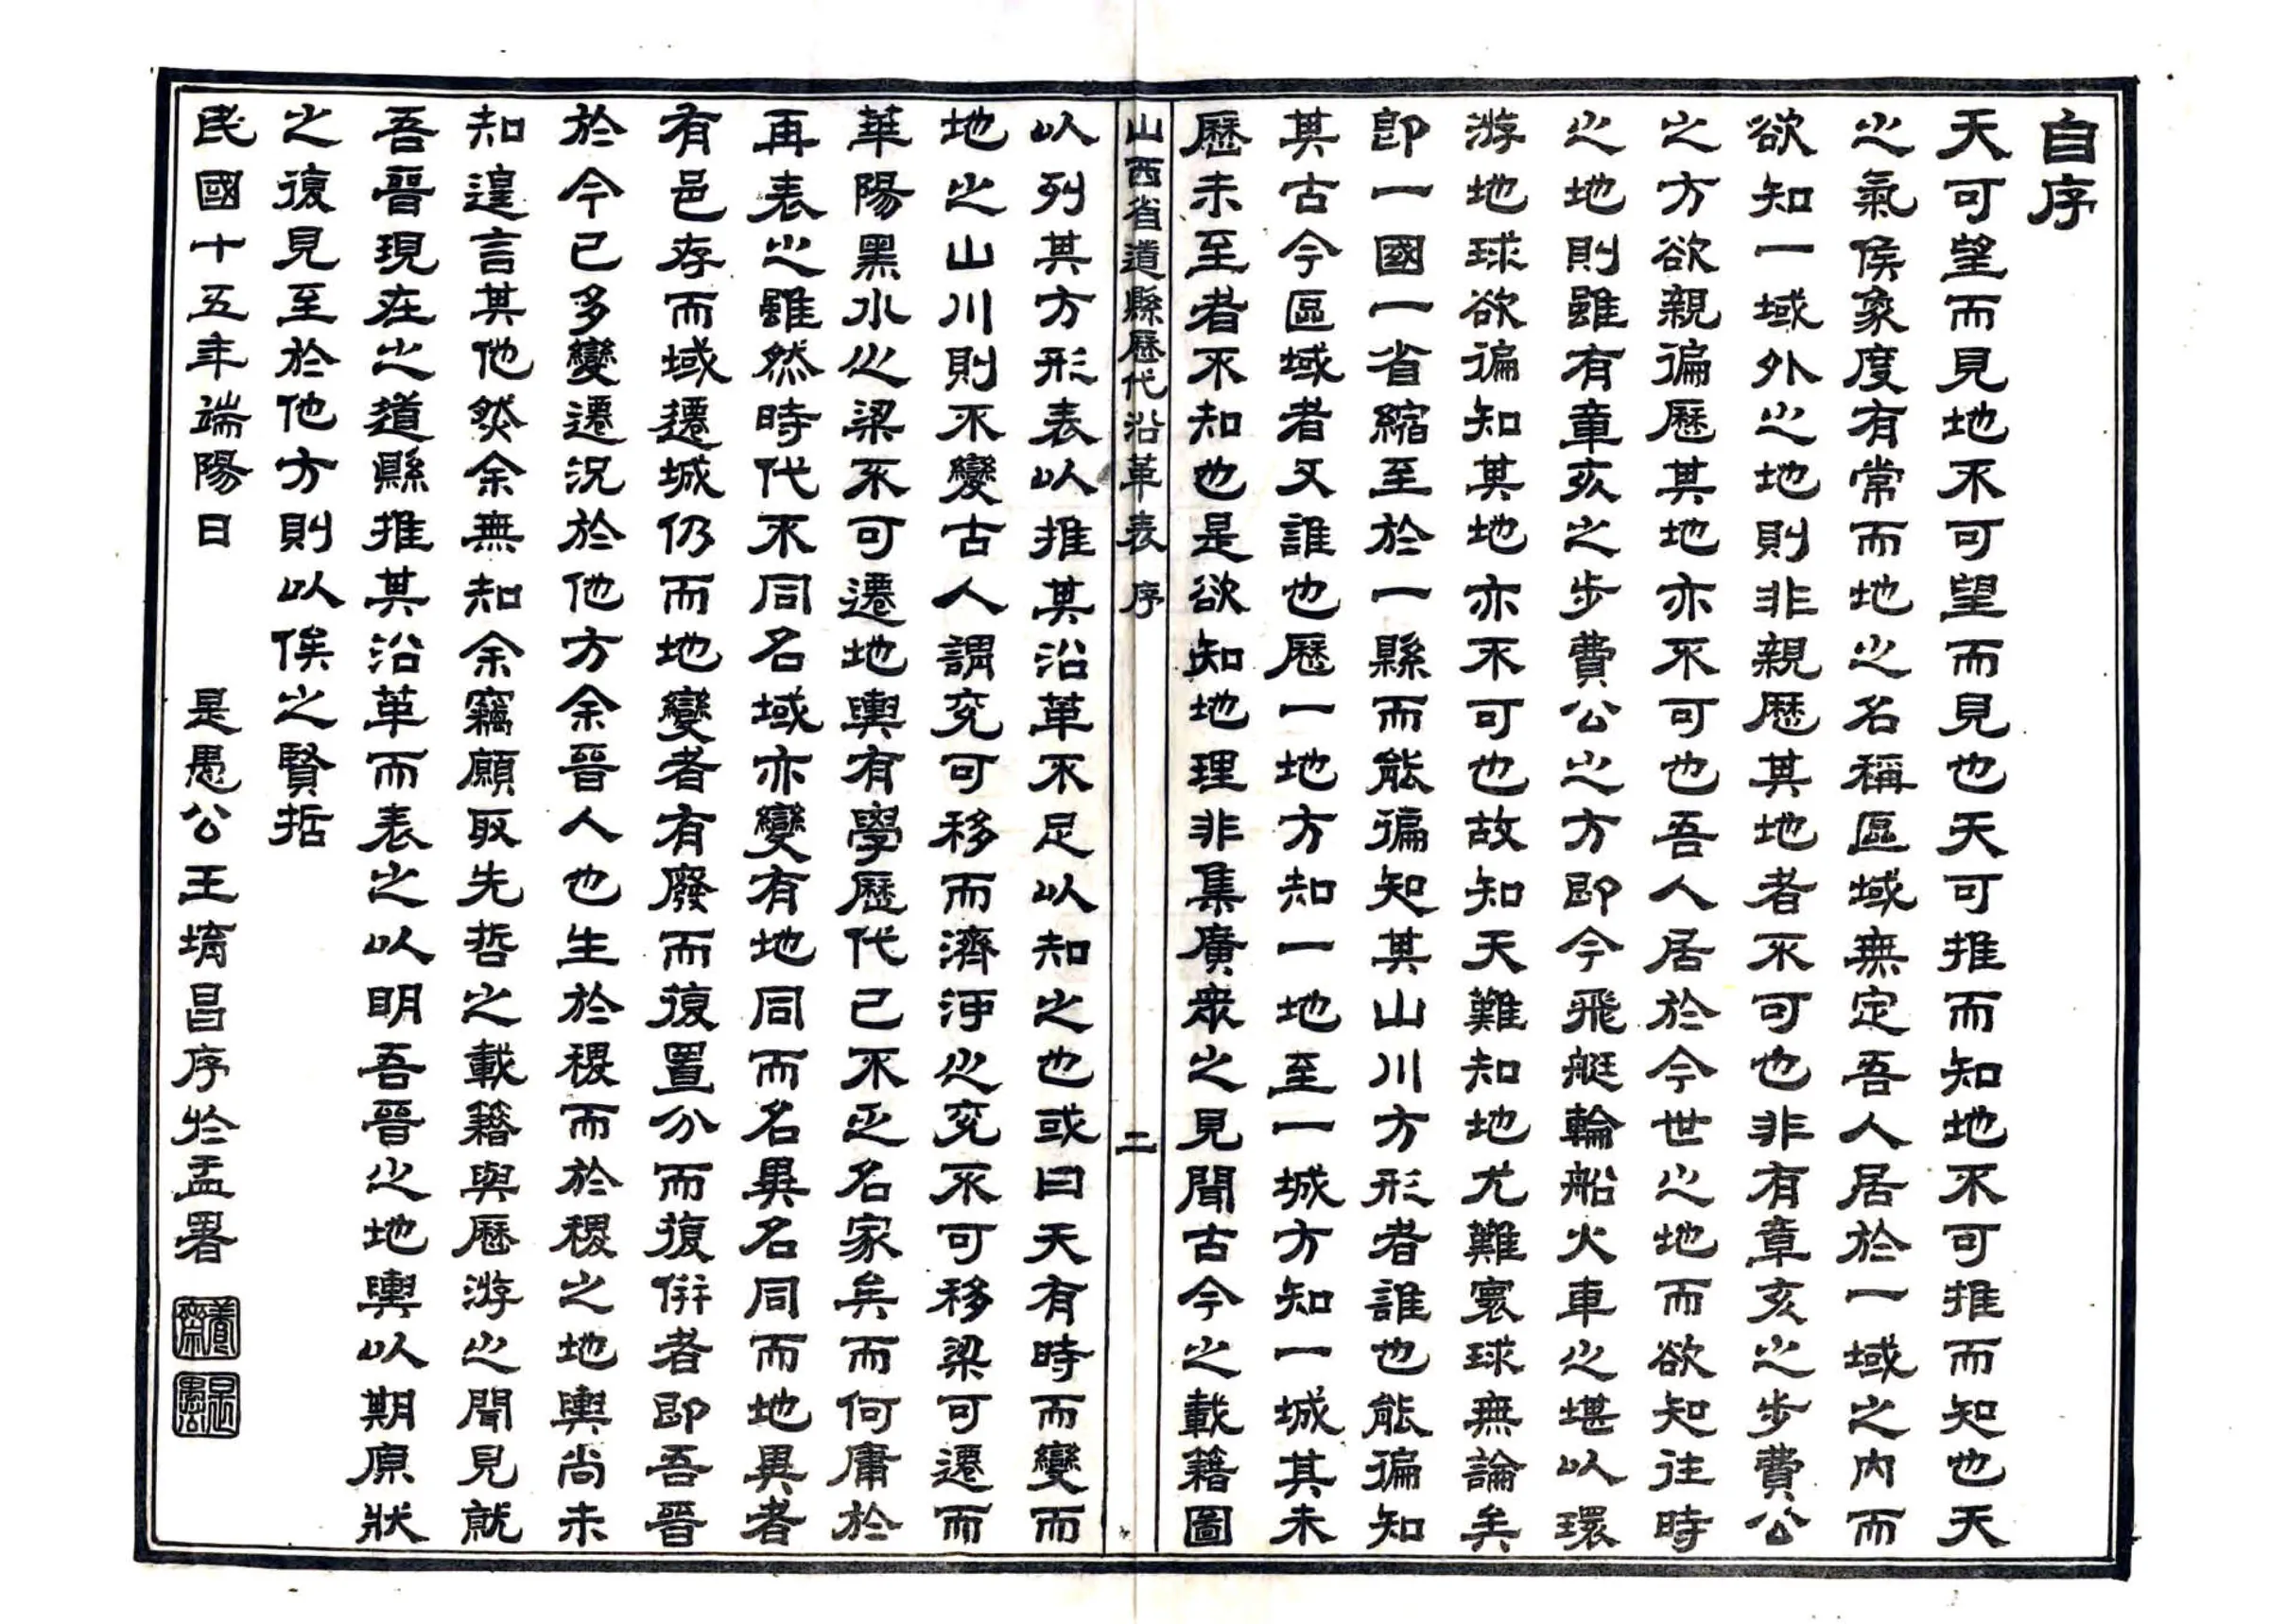 自序
天可望而見地不可望而見也天可推而知地不可推而知也天
之氣侯象度有常而地之名稱區域無定吾人居於一域之內而
欲知一域外之地則非親歷其地者不可也非有章亥之步費公
之方欲親徧歷其地亦不可也吾人居於今世之地而欲知往時
之地則雖有章亥之步費公之方即今飛艇輪船火車之堪以環
游地球欲徧知其地亦不可也故知天難知地尤難寰球無論矣
即一國一省縮至於一縣而能徧知其山川方形者誰也能徧知
其古今區域者又誰也歷一地方知一地至一城方知一城其未
歷未至者不知也是欲知地理非集廣衆之見聞古今之載籍圖
山西省道縣歷代沿革表 序 二
以列其方形表以推其沿革不足以知之也或曰天有時而變而
地之山川則不變古人謂兗可移而濟河之兗不可移梁可遷而
華陽黑水之梁不可遷地輿有學歷代已不乏名家矣而何庸於
再表之雖然時代不同名域亦變有地同而名異名同而地異者
有邑存而域遷城仍而地變者有廢而復置分而復併者即吾晉
於今已多變遷況於他方余晉人也生於稷而於稷之地輿尚未
知遑言其他然余無知余竊願取先哲之載籍與歷游之聞見就
吾晉現在之道縣推其沿革而表之以明吾晉之地輿以期原狀
之復見至於他方則以俟之賢哲
民國十五年端陽日 是愚公王堉昌序於孟署
養齋
是愚